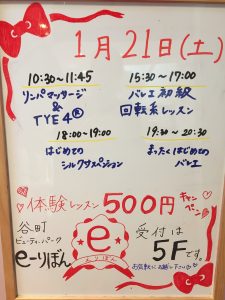 1月21日(土)
10:30~11:45
リンパマッサージ
&
TYE4®
15:30~17:00
バレエ初級
回転系レッスン
18:00~19:00
はじめての
シルクサスペンション
19:30~20:30
まったくはじめての
バレエ
体験レッスン500円キャンペーン
谷町
ビューティーパーク
e-りぼん
e
えりぼん
受付は
5Fです。
お気軽にお越し下さい